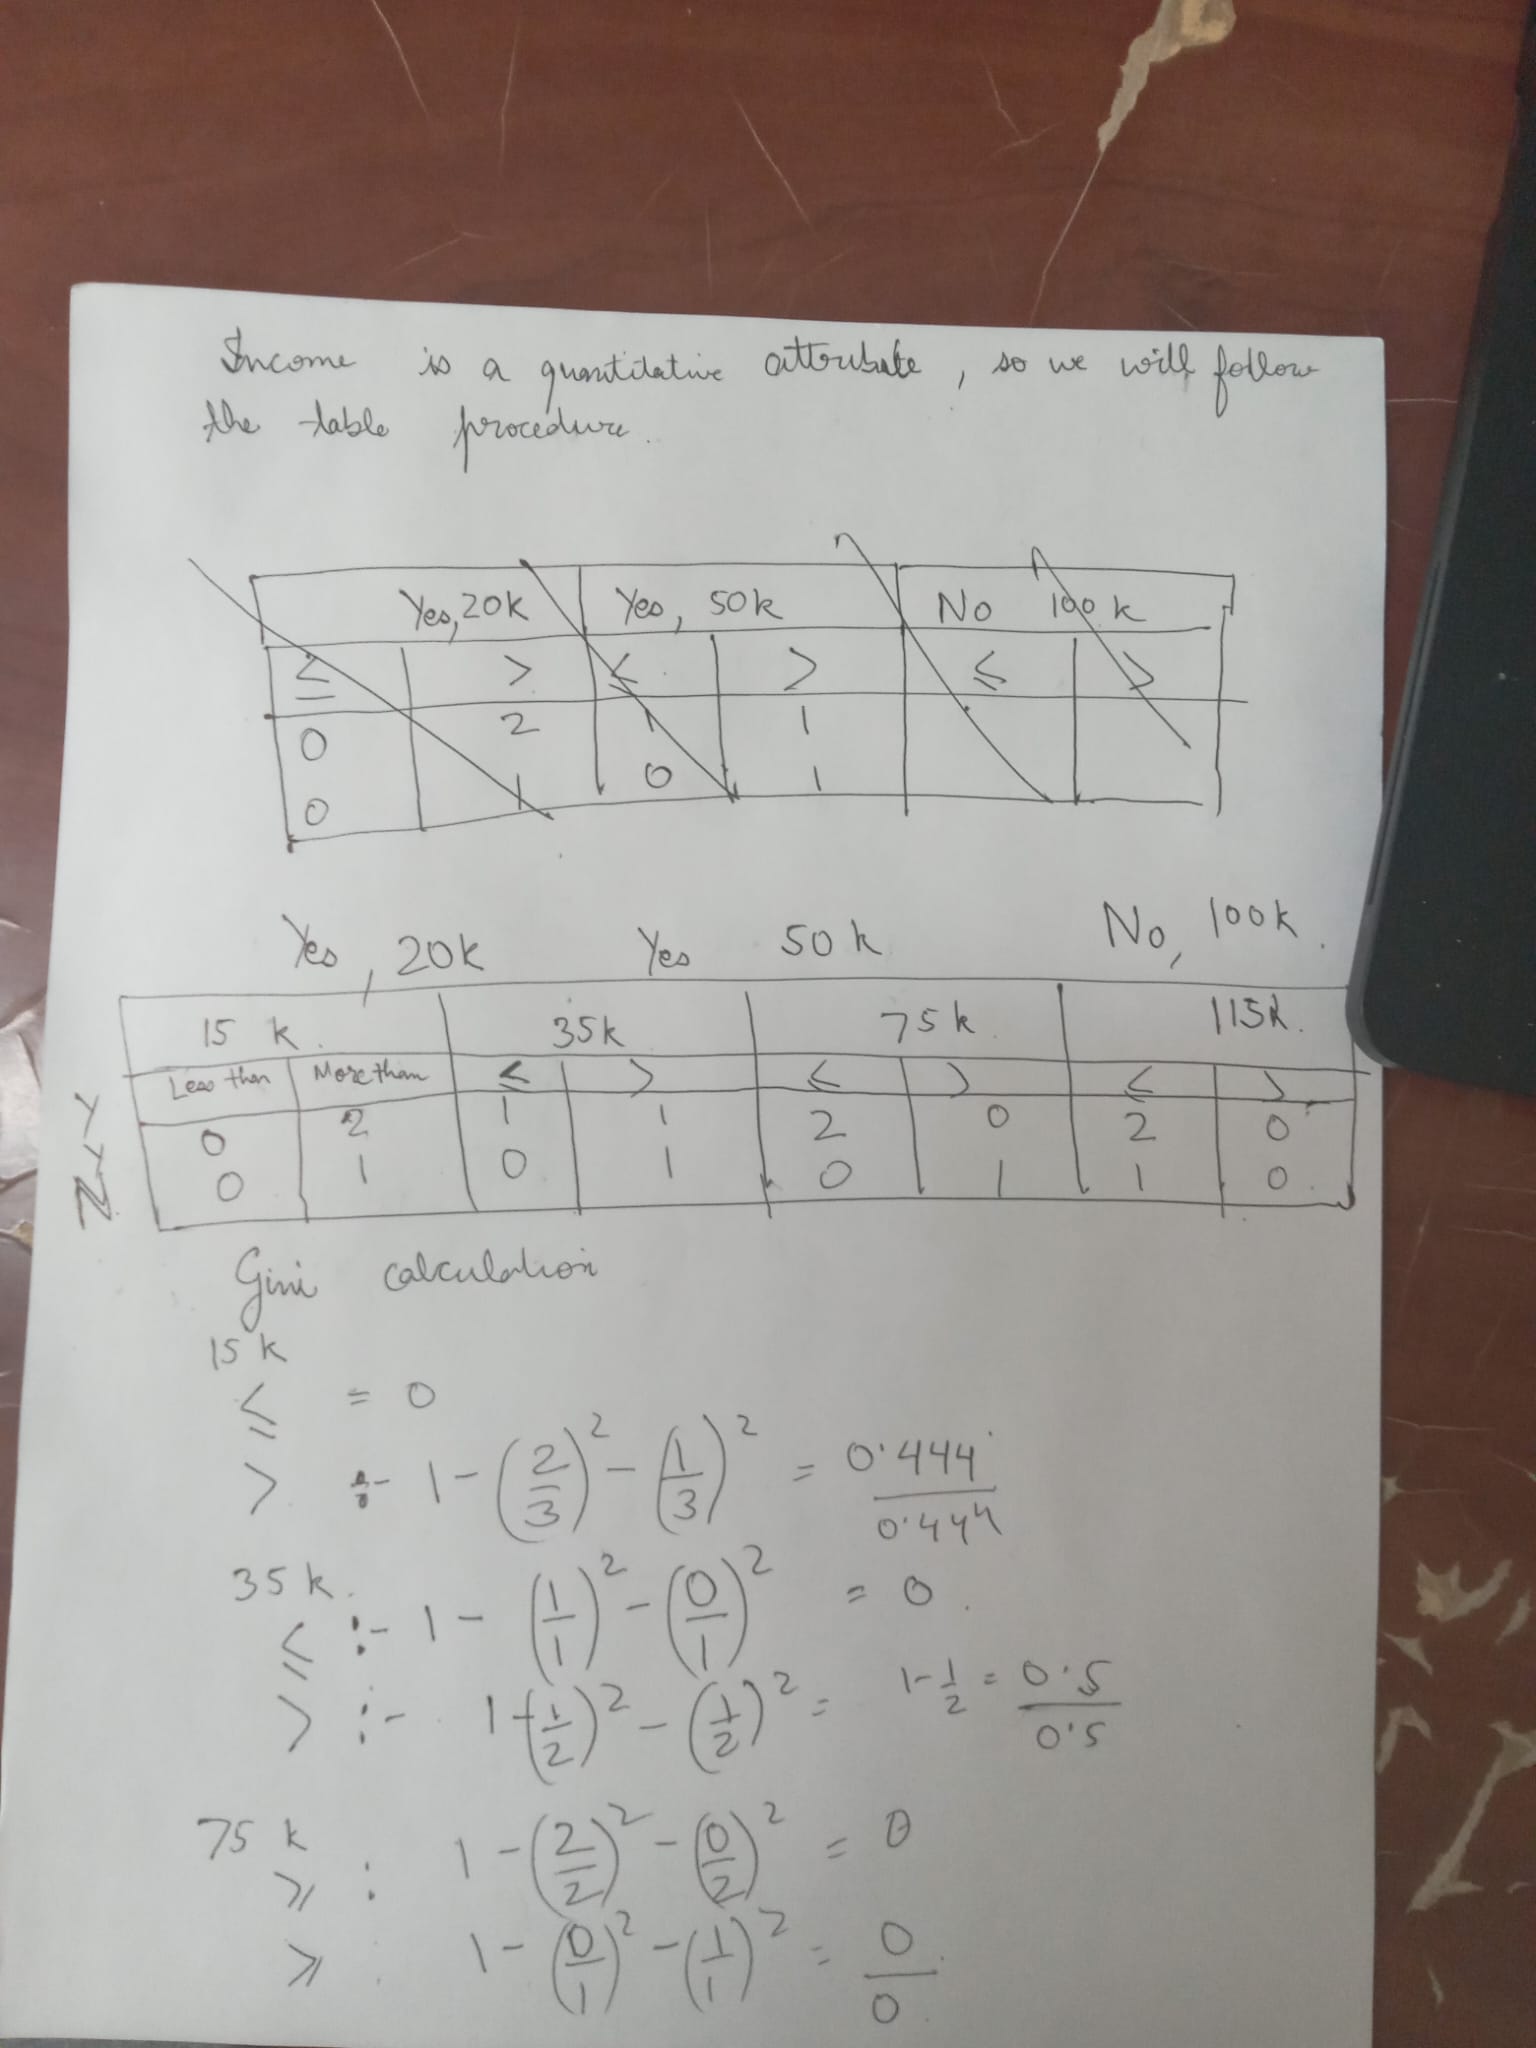 Income is a quantitative attribute, so we will follow
the table procedure.
Yes, 20k Yes, 50k No 100k
≤ > ≤ > ≤ >
0 2 1 1
0 1 0 1
Yes, 20k Yes 50k No, 100k.
15 k. 35k 75k. 115k.
Less than More than ≤ > ≤ > ≤ >
Y 0 2 1 1 2 0 2 0
N 0 1 0 1 0 1 1 0
Gini calculation
15 k
≤ = 0
> :- 1-(2/3)² - (1/3)² = 0.444
0.444
35k.
≤ :- 1 - (1/1)² - (0/1)² = 0.
> :- 1-(1/2)² - (1/2)² = 1-1/2 = 0.5
0.5
75 k
≥ : 1-(2/2)² - (0/2)² = 0
> : 1-(0/1)² - (1/1)² = 0
0.